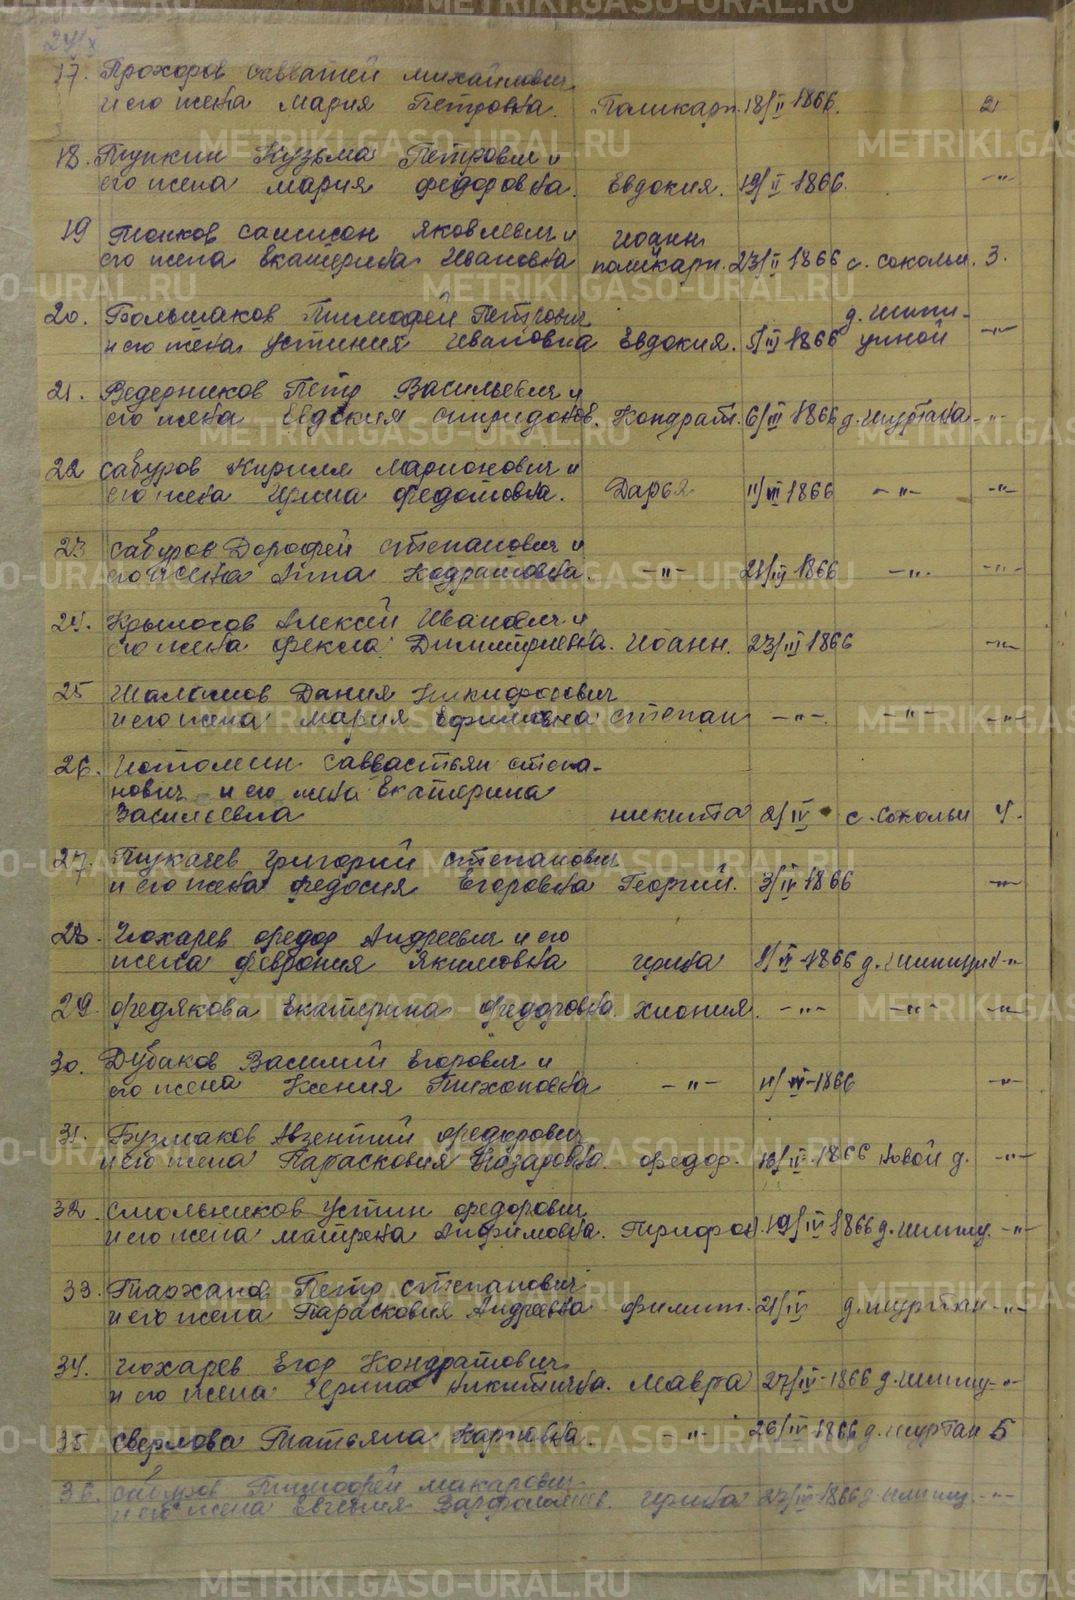 24/X
17. Прохоров Савватей Михайлович
и его жена Мария Петровна. Поликарп. 18/II 1866. 2
18. Тупкин Кузьма Петрович и
его жена Мария Федоровна. Евдокия. 19/II-1866. -"-
19 Токков Самсон Яковлевич и Иоанн
его жена Екатерина Ивановна поликарп. 23/II 1866 с. Сокольи. 3.
20. Большаков Тимофей Петрович д. Шипи-
и его жена Устиния Ивановна Евдокия. 5/III 1866 циной -"-
21. Ведерников Петр Васильевич и
его жена Евдокия Спиридонов. Кондрат. 6/III 1866 д. Шуртана -"-
22 Сабуров Кирилл Ларионович и
его жена Ирина Федотовна. Дарья 11/III 1866 -"- -"-
23 Сабуров Дорофей Степанович и
его жена Анна Кодратовна. -"- 21/III 1866 -"- -"-
24. Крылосов Алексей Иванович и
его жена Фекла Димитриевна. Иоанн. 23/III 1866 -"-
25 Шаламов Данил Никифорович
и его жена Мария Ефимовна Степан -"- -"- -"-
26. Истомин Саввастьян Степа-
нович и его жена Екатерина
Васильевна никита 2/IV с. Сокольи 4.
27. Тукачев Григорий Степанович
и его жена Федосия Егоровна Георгий. 3/IV 1866 -"-
28. Кохарев Федор Андреевич и его
жена Феврония Якимовна Ирина 8/IV-1866 д. Шипицин -"-
29. Федякова Екатерина Федоровна Хиония. -"- -"- -"-
30. Дубаков Василий Егорович и
его жена Ксения Тихоновна -"- 11/IV-1866 -"-
31. Бузмаков Авзентий Федорович
и его жена Парасковия Назаровна. Федор. 16/IV-1866 Новой д. -"-
32. Смольников Устин Федорович
и его жена Матрена Анфимовна. Трифон. 19/IV 1866 д. шипиц. -"-
33. Тарханов Петр Степанович
и его жена Парасковия Андреевна Филипп. 21/IV д. шуртан -"-
34. Кохарев Егор Кондратович
и его жена Ирина Никитична. Мавра 27/IV-1866 д. шипиц -"-
35 Сверлова Татьяна Карповна. -"- 26/IV-1866 д. шуртан 5
36. Сабуров Тимофей Макарович
и его жена Евгения Варфоломеев. Ирина 27/IV-1866 д. шипиц. -"-
METRIKI.GASO-URAL.RU